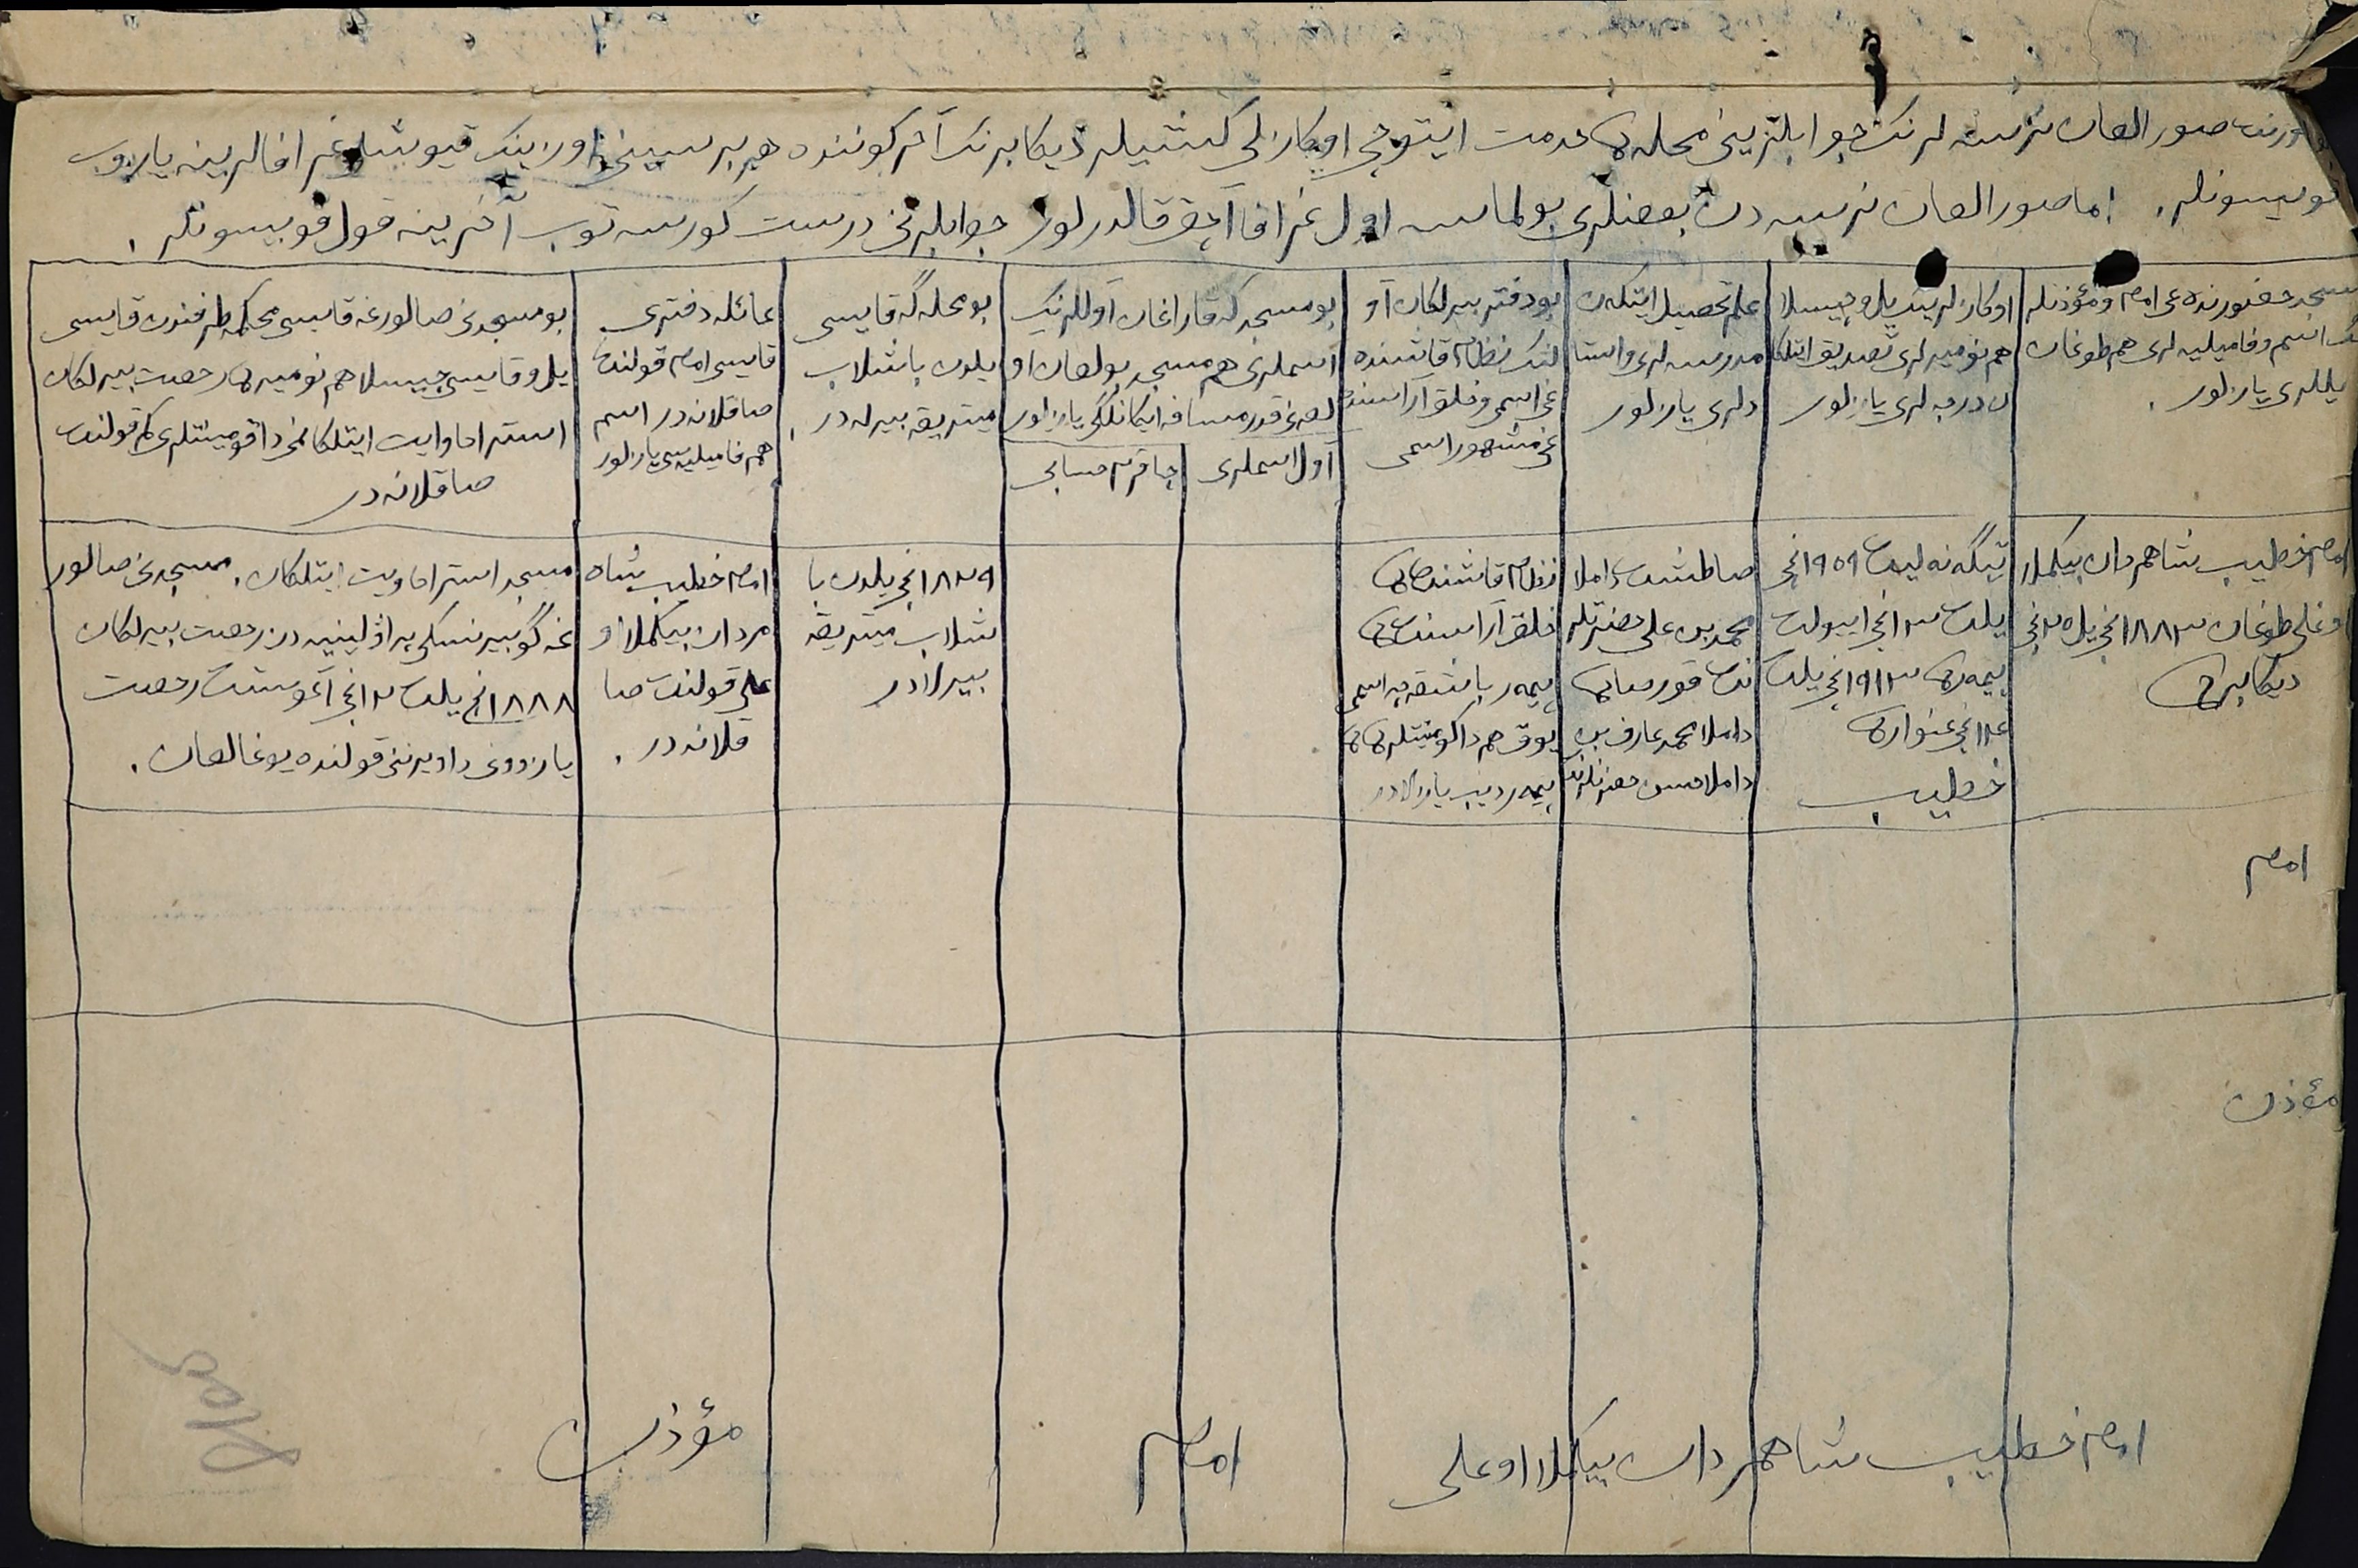 صورالغان نرسه لرنڭ جوابلرینی محله ده خدمت ایتوچی اوکازلی کشیلر دیکابرنڭ آخر کوننده هر بر سینی اوزینڭ تیوشلی غرافالرینه یازوب
قویسونلر. اما صورالغان نرسه دن بعضلری بولماسه اول غرافا آچق قالدرلور جوابلرنی درست کورسه توب آخرینه قول قویسونلر.
مسجد حضورنده غی امام و مؤذنلر
نڭ اسم و فامیلیه لری هم طوغان
یللری یازلور.
اوکازلرینڭ یل و چیسلا
هم نومیرلری تصدیق ایتلکا
ن درجه لری یازلور
علم تحصیل ایتکەن
مدرسه لری و استا
دلری یازلور
بو دفتر بیرلکان آو
لنڭ نظام قاشنده
غی اسمی و خلق آراسنده
غی مشهور اسمی
بو مسجد که قاراغان آوللرنڭ
اسملری هم مسجد بولغان او
لغه نی قدر مسافه ایکانلکی یازلور
آول اسملری
چاقرم حسابی
بو محله گه قایسی
یلدن باشلاب
میتریقه بیرله در.
عائله دفتری
قایسی امام قولنده
صاقلانه در اسم
هم فامیلیه سی یازلور
بو مسجدنی صالورغه قایسی محکمه طرفندن قایسی
یل و قایسی چیسلا هم نومیر ده رخصت بیرلکان
استراخاوایت ایتلکانمی داقومینتلری کم قولنده
صاقلانه در
امام خطیب شاهمردان بیکملا
اوغلی طوغان ۱۸۸۳ نچی یل ۲۵ نچی
دیکابرده
۱۹۰۹ نچی
یلده ۳ نچی اییولده
۱۹۱۳ نچی یلده
غنوارده
خطیب
محمد بن علی حضرتلر
داملا محمد عارف بن
داملا حسن حضرتلرنده
نظام قاشنده
خلق آراسنده
باشقه چه اسمی
یوق هم داکومینتلرده
یازلادر
۱۸۲۹ نچی یلدن با
شلاب میتریقه
بیرلادر
امام خطیب شاه
مردان بیکملا او
غلی قولنده صا
قلانه در.
مسجد استراخاویت ایتلکان. مسجدنی صالور
غه گوبیرنسکی پراولینیه دن رخصت بیرلکان
۱۸۸۸ نچی یلده ۲ نچی آغوستده رخصت
یازووی داویرننی قولنده یوغالغان.
امام
مؤذن
امام خطیب شاهمردان بیکملا اوغلی
امام
مؤذن